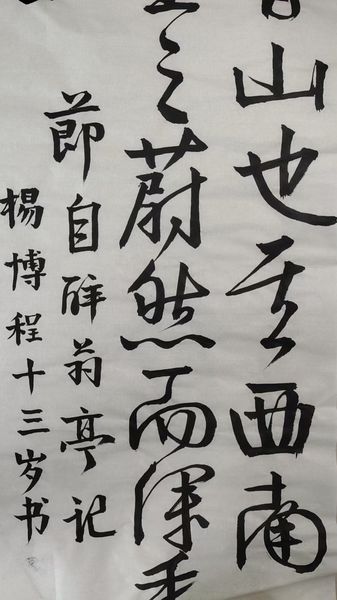 山也其西南
之蔚然而深
節自醉翁亭记
楊博程十三岁书